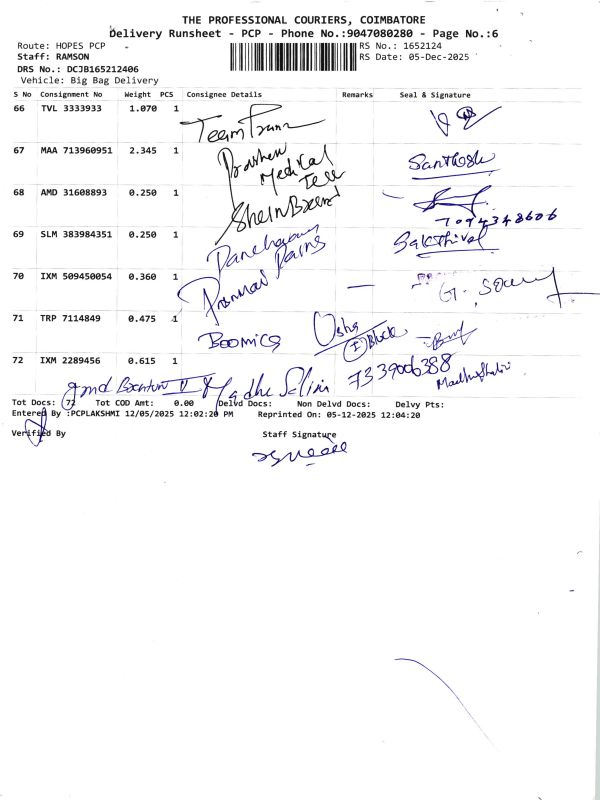 THE PROFESSIONAL COURIERS, COIMBATORE
Delivery Runsheet - PCP - Phone No.:9047080280 - Page No.:6
Route: HOPES PCP RS No.: 1652124
Staff: RAMSON RS Date: 05-Dec-2025
DRS No.: DCJB165212406
Vehicle: Big Bag Delivery
S No Consignment No Weight PCS Consignee Details Remarks Seal & Signature
66 TVL 3333933 1.070 1 Team
67 MAA 713960951 2.345 1 Medical Santhosh
68 AMD 31608893 0.250 1 7094348606
69 SLM 383984351 0.250 1 Sakthivel
70 IXM 509450054 0.360 1 —
71 TRP 7114849 0.475 1 Boomica Usha I Block
72 IXM 2289456 0.615 1 Madhu Salini 7339006388
Tot Docs: 72 Tot COD Amt: 0.00 Delvd Docs: Non Delvd Docs: Delvy Pts:
Entered By :PCPLAKSHMI 12/05/2025 12:02:20 PM Reprinted On: 05-12-2025 12:04:20
Verified By Staff Signature